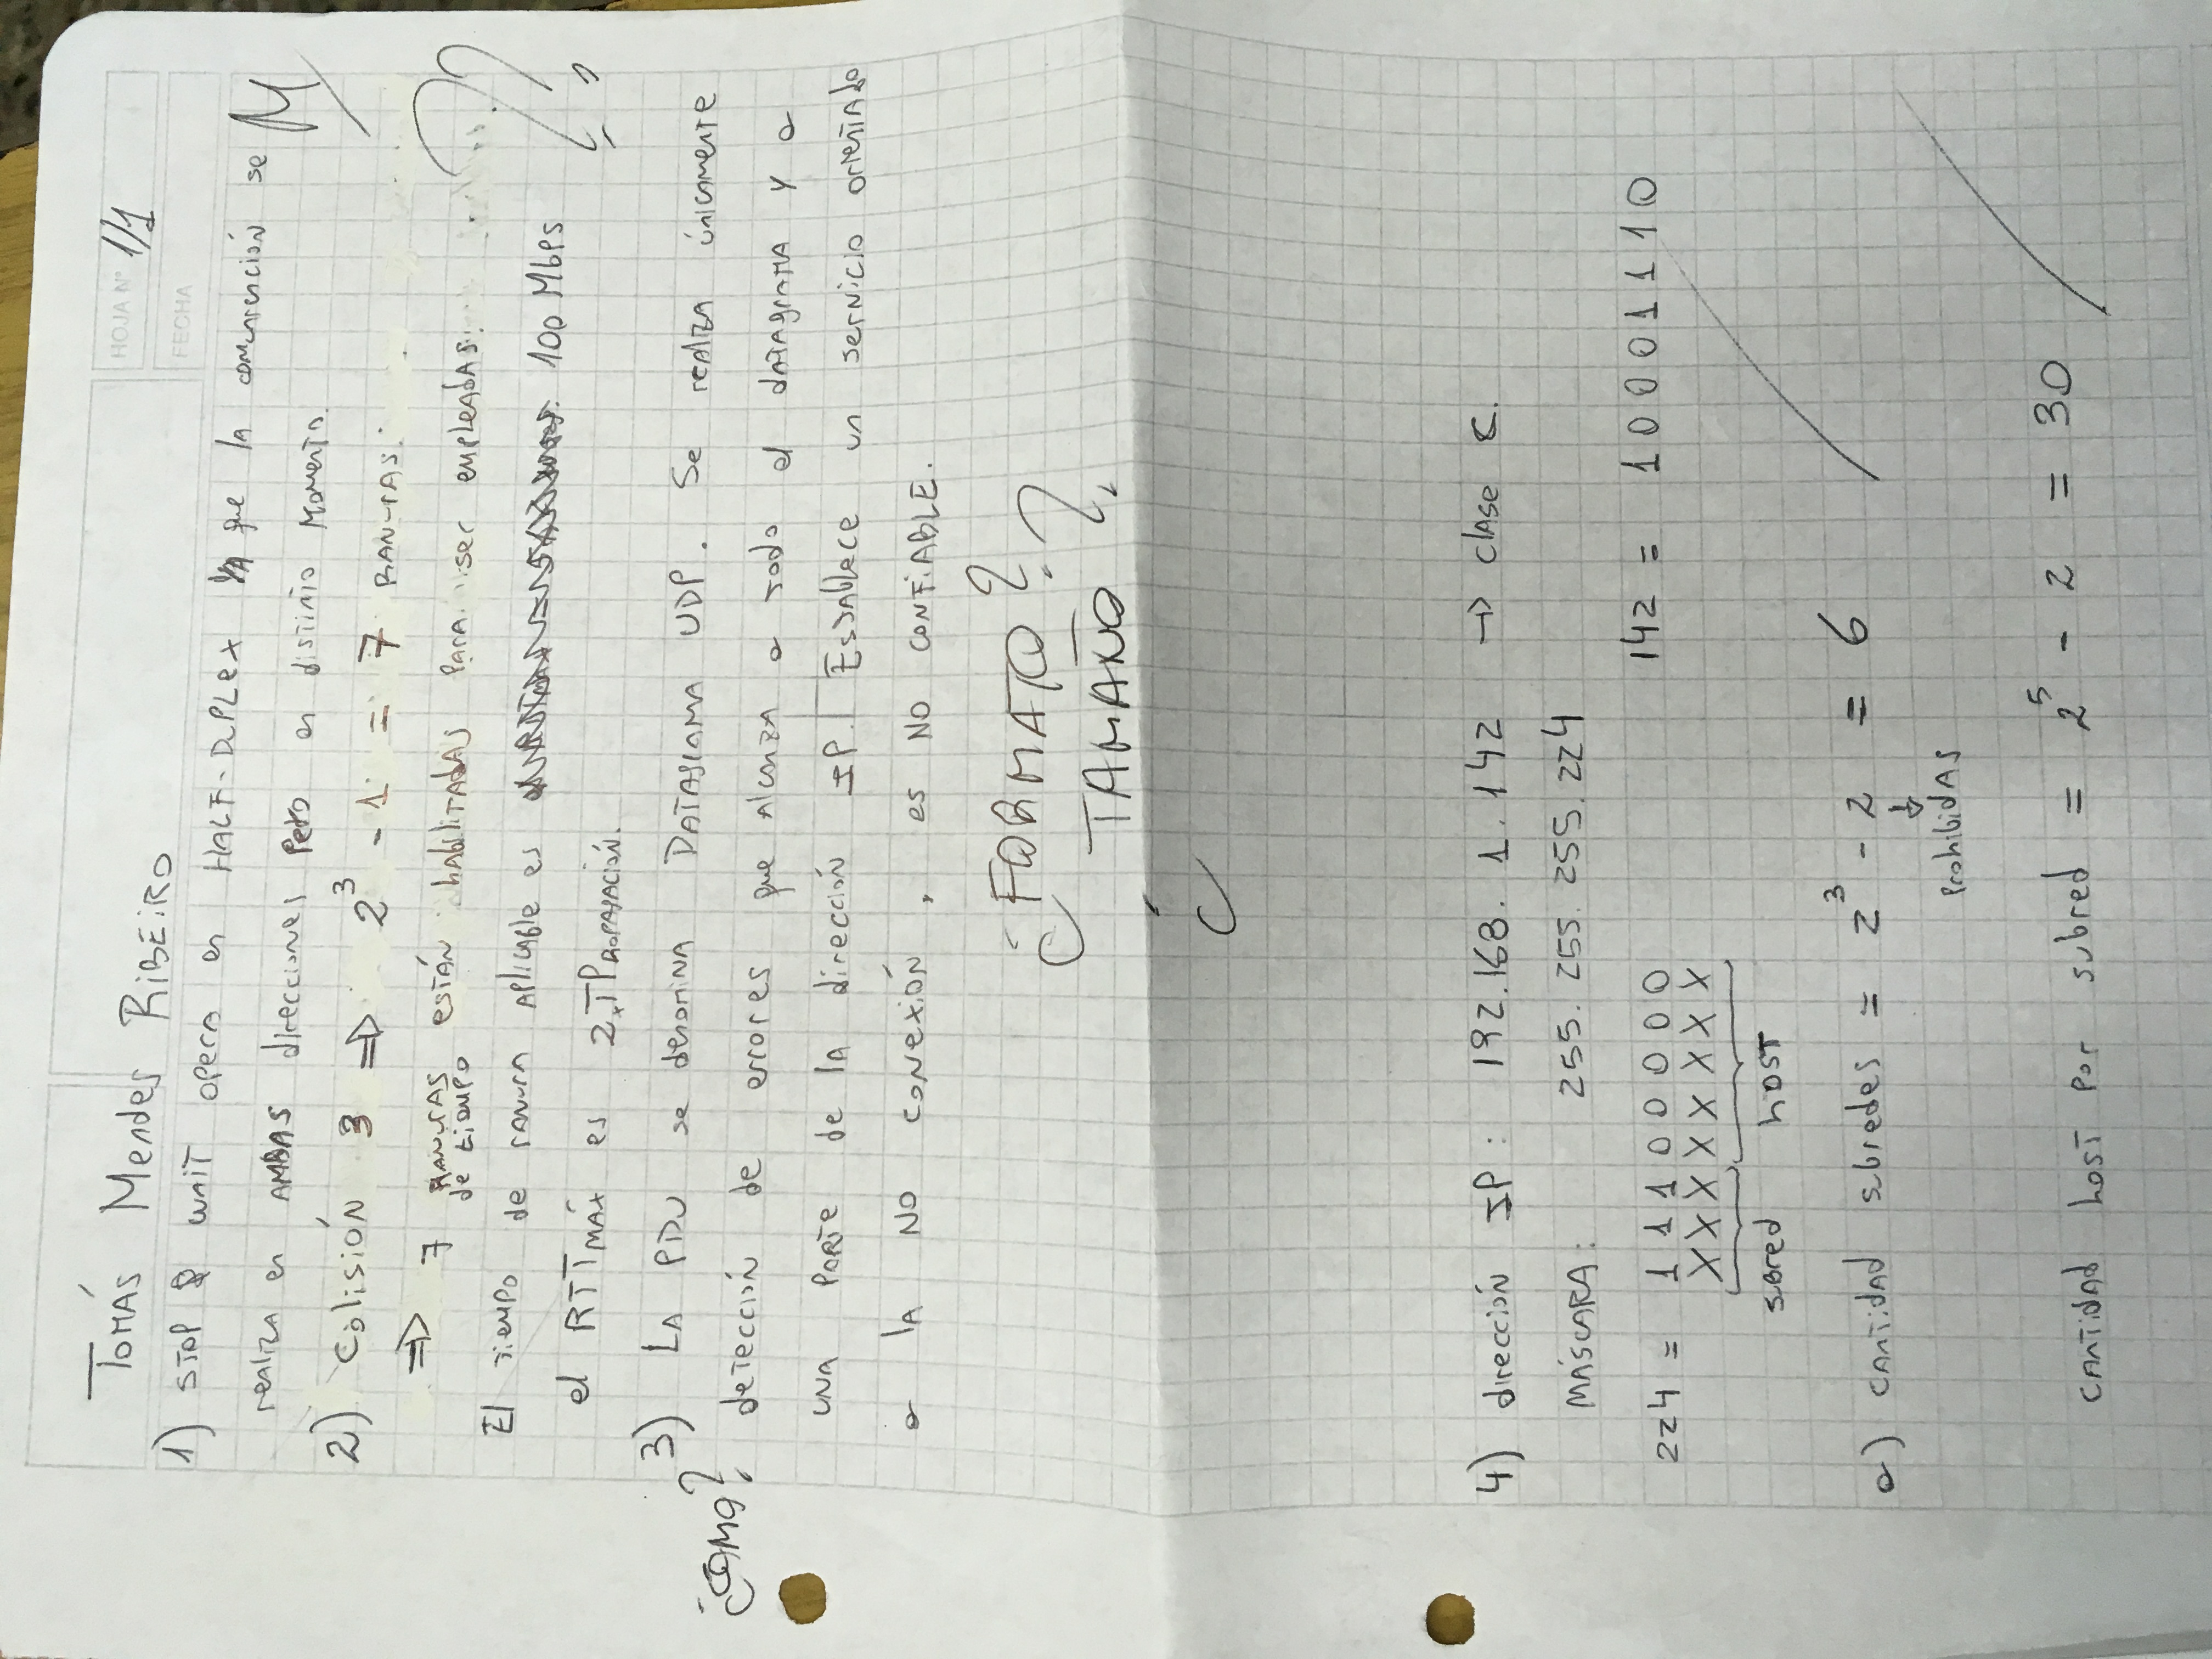 TOMÁS Mendes RIBEIRO
HOJA Nº 1/1
FECHA
1) STOP & WAIT opera en HALF-DUPLEX YA que la comunicación se
realiza en AMBAS direcciones Pero en distinto Momento.
M
2) Colisión 3 ⇒ 2³ - 1 = 7 RANURAS.
⇒ 7 RANURAS de tiempo están habilitadas para ser empleadas.
??
El tiempo de ranura aplicable es 100 Mbps
el RTT MÁX es 2.TPROPAGACIÓN.
3) LA PDU se denomina DATAGRAMA UDP. Se realiza únicamente
¿COMO?
detección de errores que alcanza a todo el datagrama y a
una parte de la dirección IP. Establece un servicio orientado
a la NO CONEXIÓN, es NO CONFIABLE.
¿FORMATO?
¿TAMAÑO?
4) dirección IP: 192.168.1.142 → clase C.
MÁSCARA: 255.255.255.224
224 = 11100000 142 = 10001110
XXXXXXXX
subred host
a) cantidad subredes = 2³ - 2 = 6
↓
Prohibidas
cantidad host por subred = 2⁵ - 2 = 30